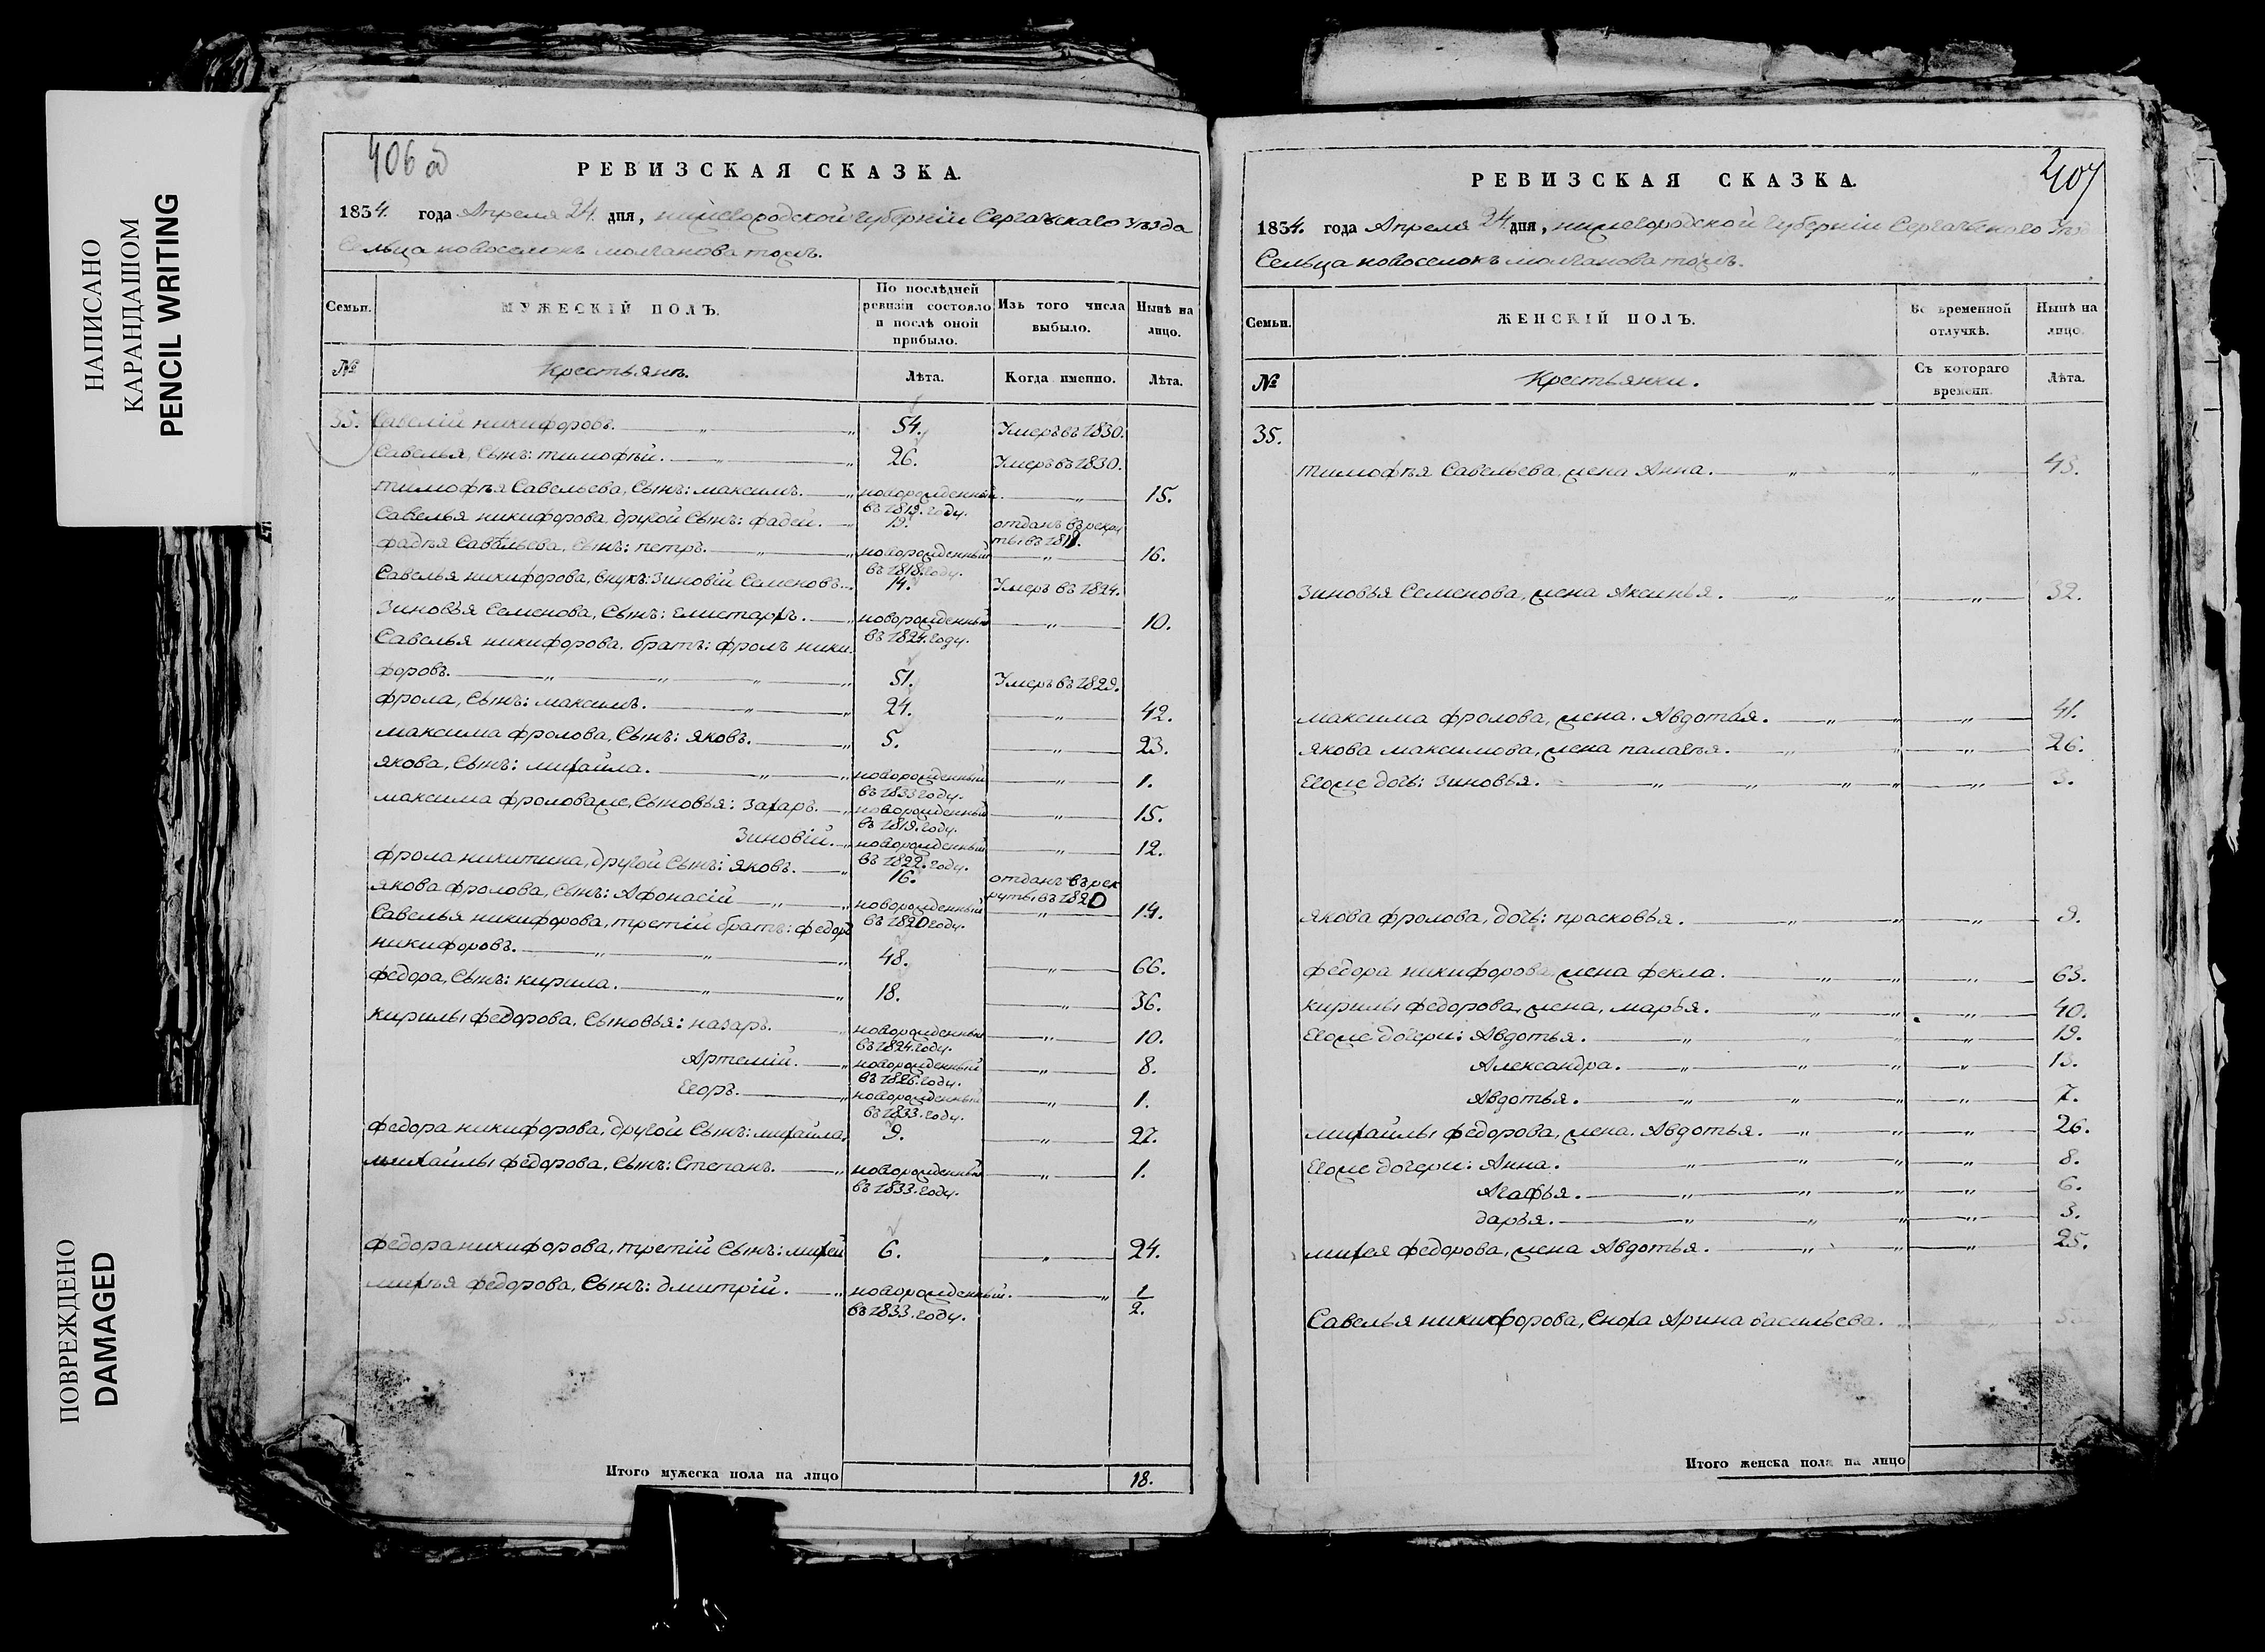 НАПИСАНО
КАРАНДАШОМ
PENCIL WRITING
ПОВРЕЖДЕНО
DAMAGED
406 об
РЕВИЗСКАЯ СКАЗКА.
1834. года Апреля 24. дня, нижегородской губернiи Сергачьскаго Уѣзда
Сельца новоселокъ молчанова тожъ.
Семьи.
МУЖЕСКIЙ ПОЛЪ.
По послѣдней ревизiи состояло и послѣ оной прибыло.
Изъ того числа выбыло.
Нынѣ на лицо.
№
Крестьянъ.
Лѣта.
Когда именно.
Лѣта.
35. Савелiй никифоровъ. 54. Умеръ въ 1830.
Савелья, Сынъ: тимофѣй. 26. Умеръ въ 1830.
тимофѣя Савельева, Сынъ: максимъ. новорожденный въ 1819. году. 15.
Савелья никифорова другой Сынъ: фадей. 19. отданъ въ рекруты въ 1818.
фадѣя Савельева, Сынъ: петръ. новорожденный въ 1818. году. 16.
Савелья никифорова, внукъ: Зиновiй Семеновъ. 14. Умеръ въ 1824.
Зиновья Семенова, Сынъ: Елистаръ. новорожденный въ 1824. году. 10.
Савелья никифорова. братъ: фролъ ники
форовъ. 51. Умеръ въ 1829.
фрола, Сынъ: максимъ. 24. 42.
максима фролова, Сынъ: яковъ. 5. 23.
якова, Сынъ: михайла. новорожденный въ 1833 году. 1.
максима фролова же, Сыновья: Захаръ. новорожденный въ 1819. году. 15.
Зиновiй. новорожденный въ 1822. году. 12.
фрола никитина, другой Сынъ: яковъ. 16. отданъ въ рекруты въ 1820
якова фролова, Сынъ: Афонасiй новорожденный въ 1820 году. 14.
Савелья никифорова, третiй братъ: федоръ
никифоровъ. 48. 66.
федора, Сынъ: кирила. 18. 36.
кирилы федорова, Сыновья: назаръ. новорожденный въ 1824. году. 10.
Артемiй. новорожденный въ 1826. году. 8.
Егоръ. новорожденный въ 1833. году. 1.
федора никифорова, другой Сынъ: михайла. 9. 27.
михайлы федорова, Сынъ: Степанъ. новорожденный въ 1833. году. 1.
федора никифорова, третiй Сынъ: михей 6. 24.
михѣя федорова, Сынъ: дмитрiй. новорожденный. въ 1833. году. 1/2.
Итого мужеска пола на лицо 18.
407
РЕВИЗСКАЯ СКАЗКА.
1834. года Апреля 24. дня, нижегородской губернiи Сергачьскаго Уѣзд
Сельца новоселокъ молчанова тожъ.
Семьи.
ЖЕНСКIЙ ПОЛЪ.
Во временной отлучкѣ.
Нынѣ на лицо.
№
Крестьянки.
Съ котораго времени.
Лѣта.
35.
тимофѣя Савельева, жена Анна. 43.
Зиновья Семенова, жена Аксинья. 32.
максима фролова, жена. Авдотья. 41.
якова максимова, жена палагѣя. 26.
Егоже дочь: Зиновья. 3.
якова фролова, дочь: прасковья. 9.
федора никифорова, жена фекла. 63.
кирилы федорова, жена, марья. 40.
Егоже дочери: Авдотья. 19.
Александра. 13.
Авдотья. 7.
михайлы федорова, жена. Авдотья. 26.
Егоже дочери: Анна. 8.
Агафья. 6.
дарья. 3.
михея федорова, жена Авдотья. 25.
Савелья никифорова, Сноха Арина васильева.
Итого женска пола на лицо